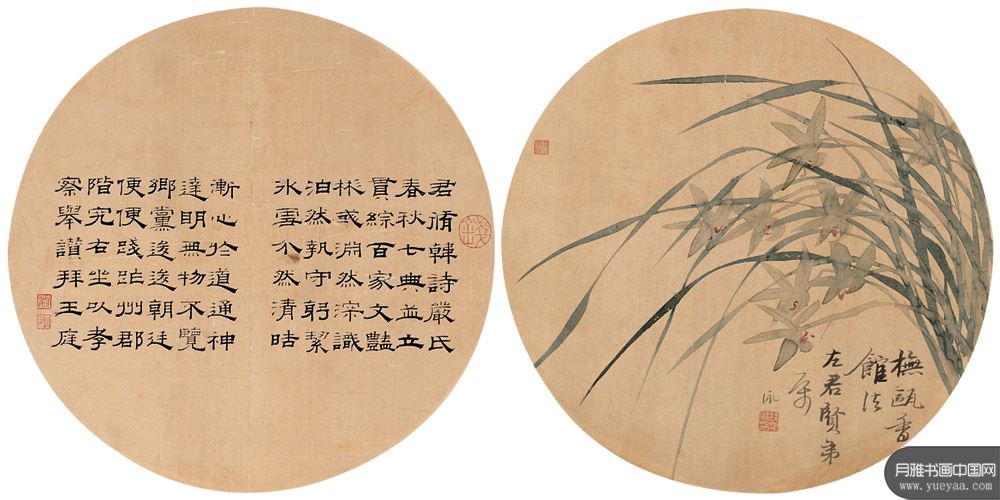 君脩韓詩嚴氏
春秋七典並立
貫綜百家文豔
彬彧淵然深識
泊然執守躬絜
雪介然清
漸心於道通神
達明無物不覽
鄉黨逡逡朝廷
便便踐州郡
階究右坐以孝
察舉讚拜王庭
橅甌香
館法
左君賢弟
属
泳
月雅书画中国网
www.yueyaa.com